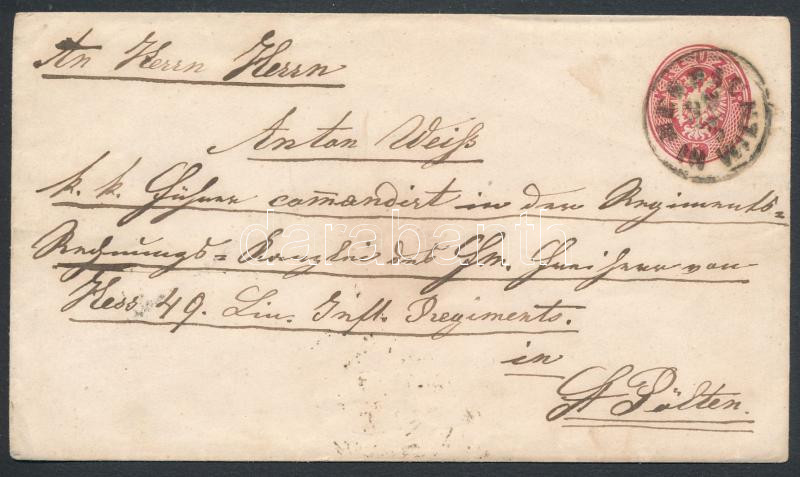 An Herrn Herrn
Anton Weiß
k. k. Führer commandirt in der Regiments=
Rechnungs=Kanzlei des Hr. Freiherr von
Hess 49. Lin. Inft. Regiments.
in
St Pölten.
darabanth